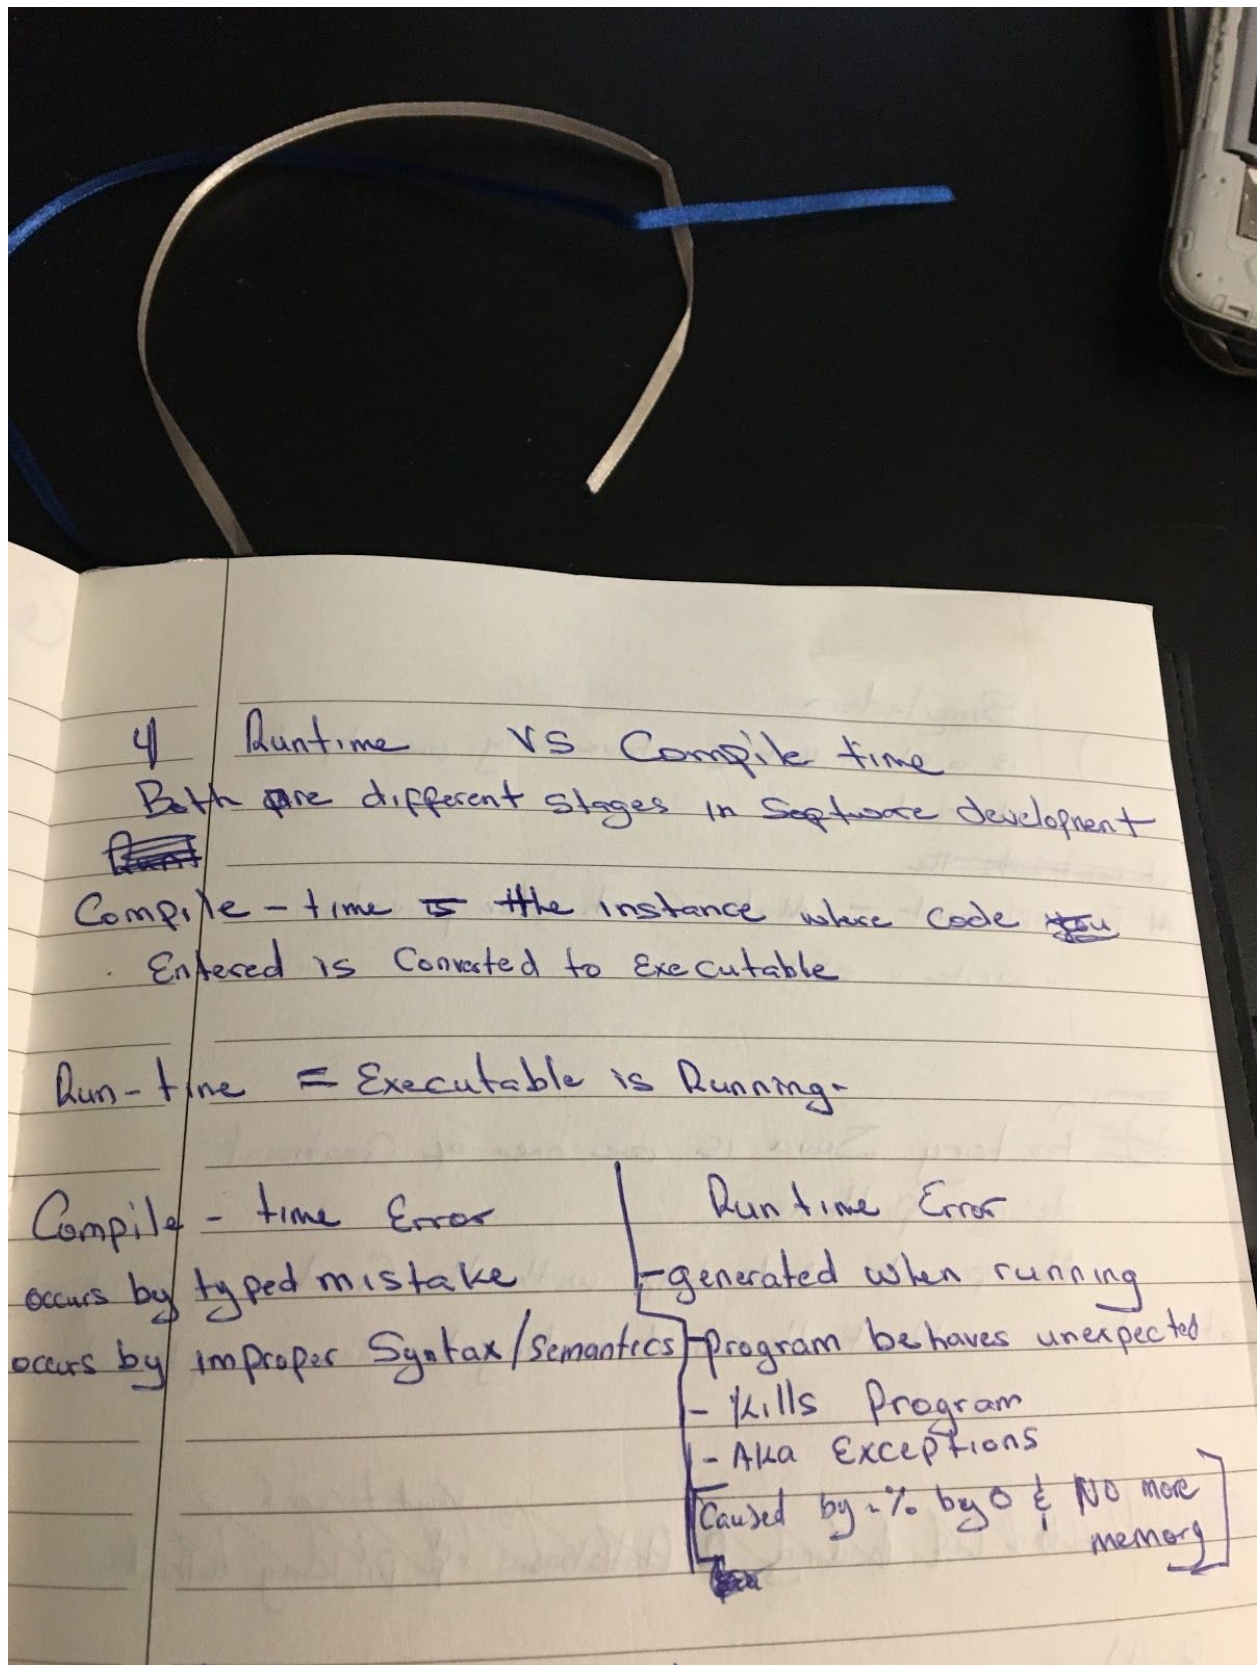 4 Runtime VS Compile time
Both are different stages in Software development
Compile-time = the instance where code you
Entered is Converted to Executable
Run-time = Executable is Running-
Compile-time Error
occurs by typed mistake
occurs by improper Syntax/Semantics
Runtime Error
-generated when running
-program behaves unexpected
- Kills Program
- AKA Exceptions
Caused by -% by 0 & NO more
memory